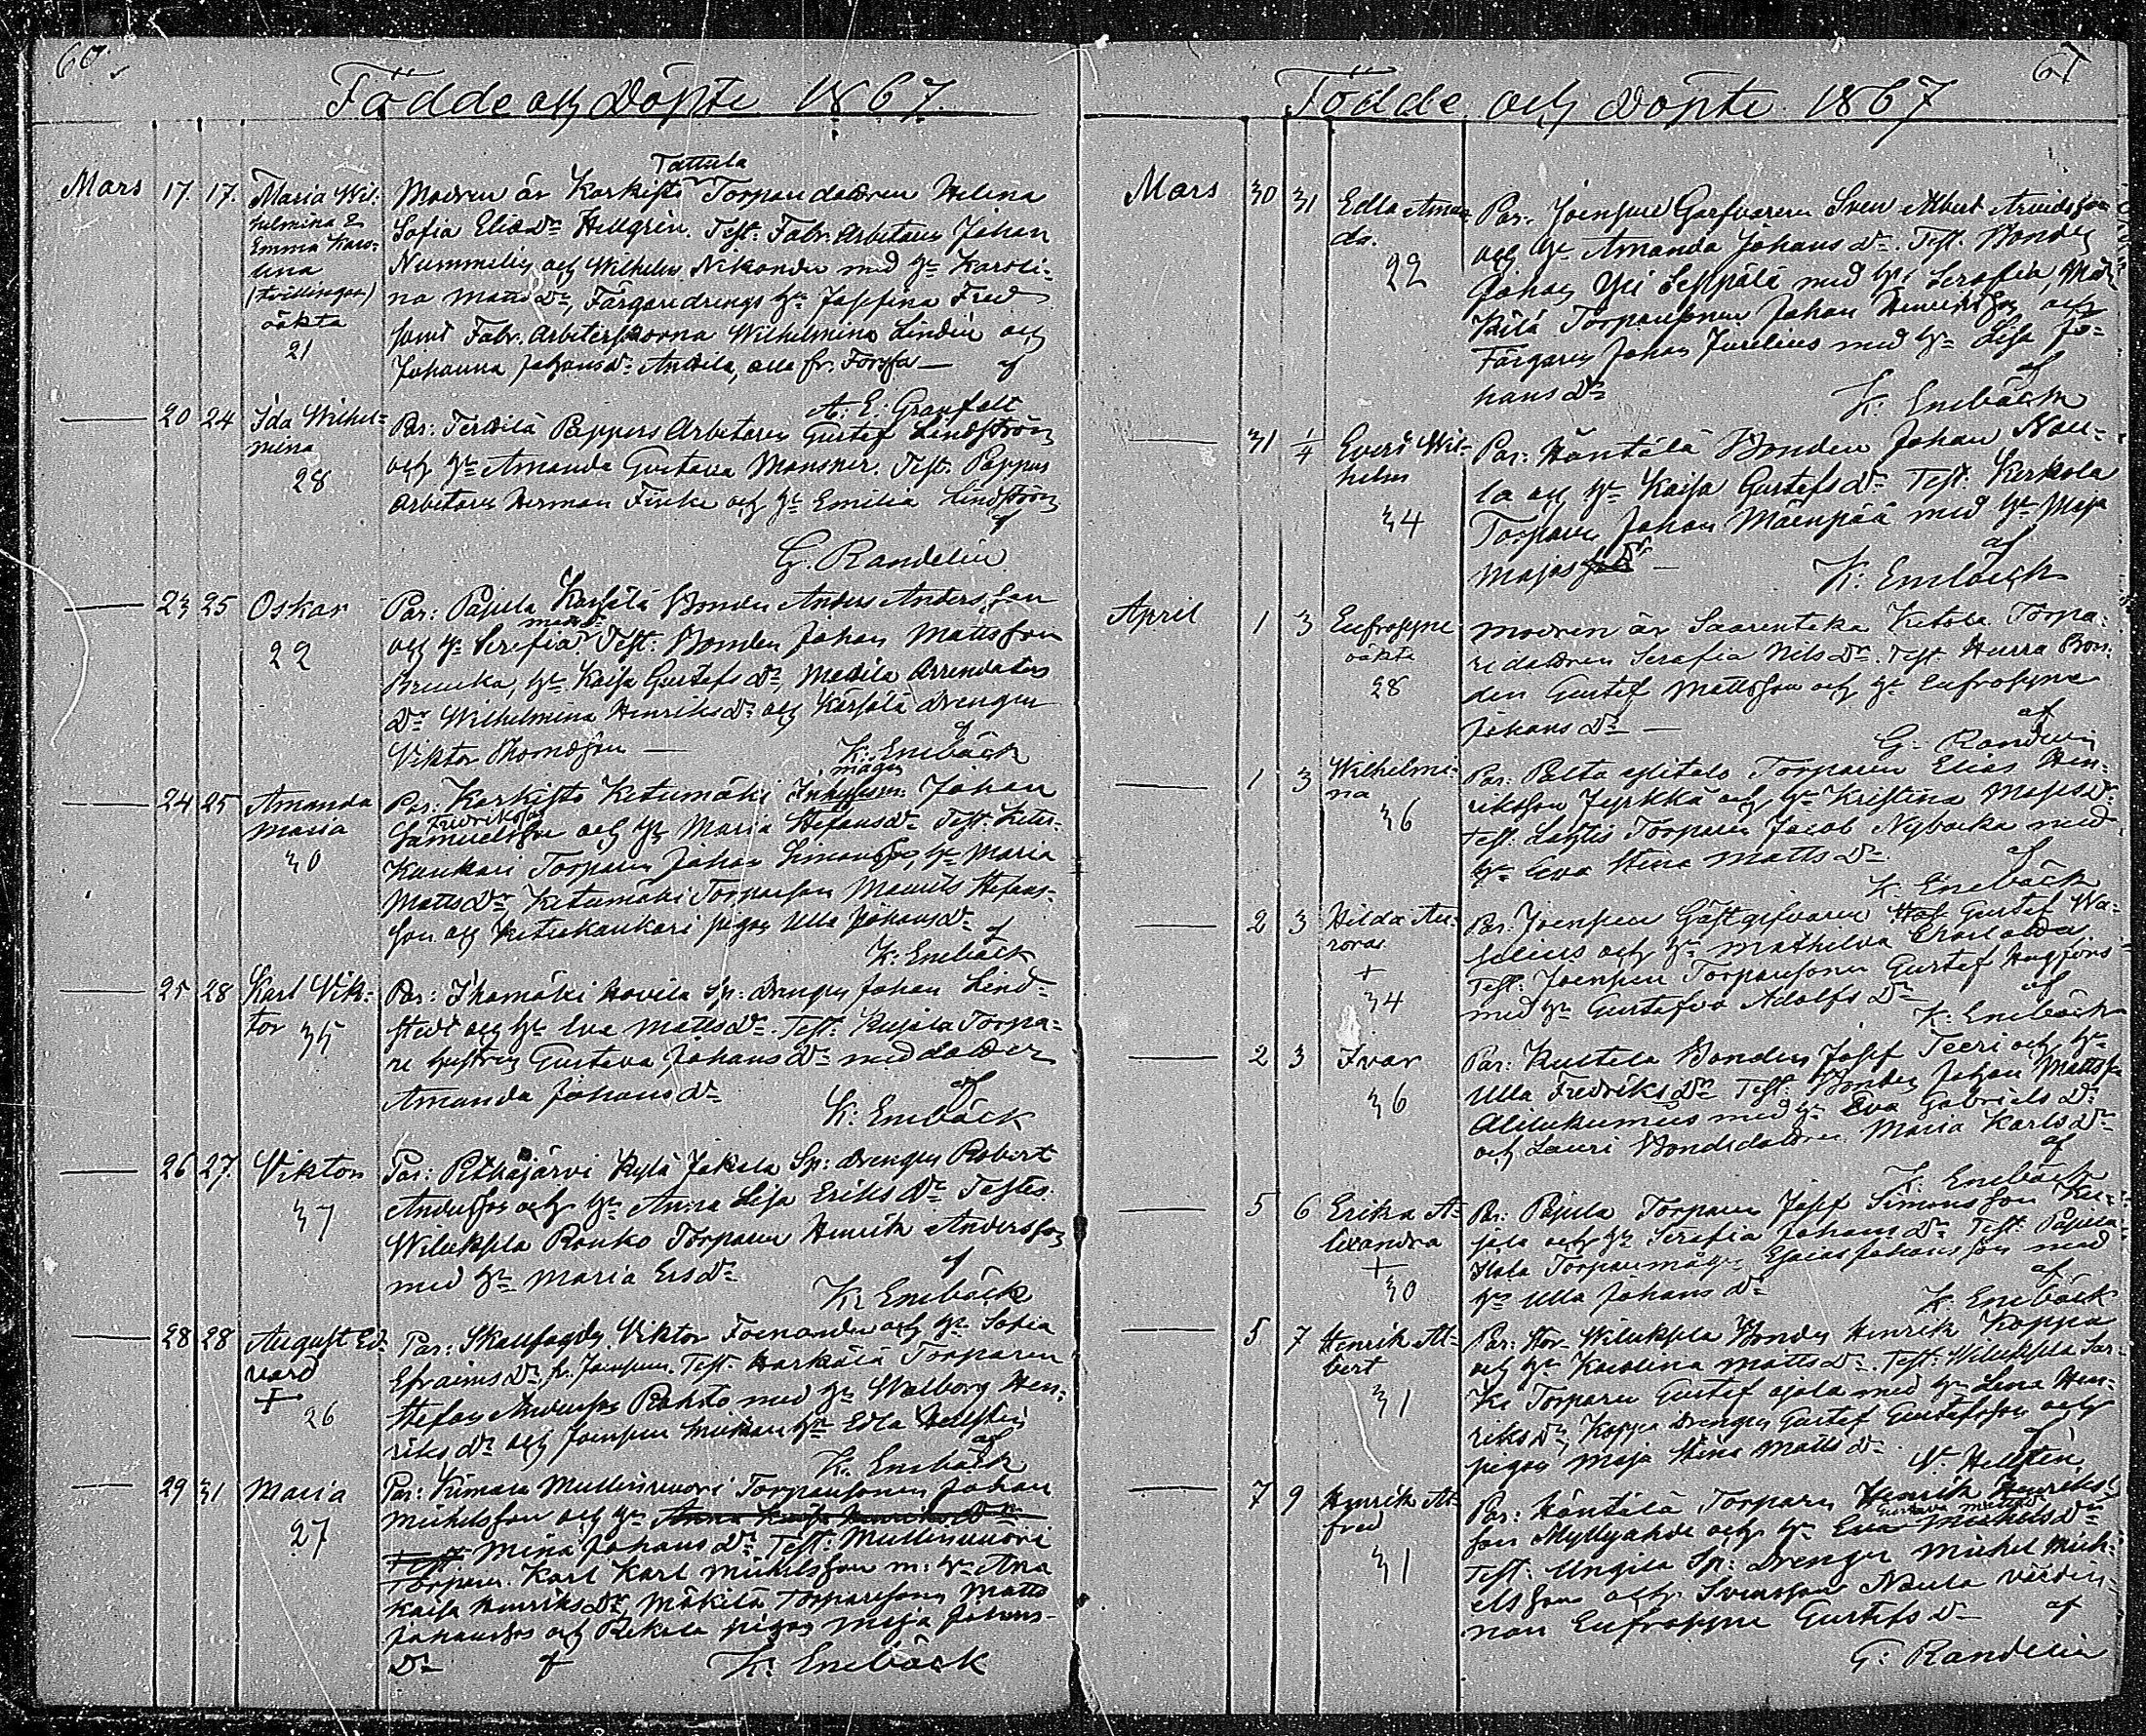 60
Födde och Döpte 1867.
Mars 17. 17. Maria Wil-
helmina &
Emma Karo-
lina
(tvillingar)
oäkta
21
Tattula
Modren är Karkisto Torpardottren Helena
Sofia Eliæ Dr Hellgrén. Test: Fabr. Arbetaren Johan
Nummelin och Wilhelm Nikander med Hu Karoli-
na Matts Dr, Färgaredrengs Hu Josefina Fred
samt Fabr. Arbeterskorna Wilhelmina Lindén och
Johanna Johans Dr Anttila, alla fr. Forssa — af
A. E. Granfelt
— 20 24 Ida Wilhel-
mina
28
Par: Terttilä Pappers Arbetaren Gustaf Lindström
och Hu Amanda Gustava Monsner. Test: Pappers
Arbetaren Herman Finke och Hu Emilia Lindström
af
G. Randelin
— 23 25 Oskar
22
Par: Pajula Karjälä Bonden Anders Andersson
och Hu Serefia Matts Dr. Test: Bonden Johan Mattsson
Prunka, Hu Kaisa Gustafs Dr, Mattila Arrendators
Dr Wilhelmina Henriks Dr och Kärjälä Drengen
Viktor Thomasson — af
K: Enebäck
— 24 25 Amanda
Maria
30
Par: Karkisto Ketumäki mågen Johan
Fredriksson
Samuelsson och Hu Maria Stefans Dr Test: Ketu-
Kankari Torparen Johan Simonsson, Hu Maria
Matts Dr Ketumäki Torparson Maurits Stefans-
son och Ketukankari pigan Ulla Johans Dr af
K: Enebäck
— 25 28 Karl Vik-
tor
35
Par: Ihamäki Hovila Sp: Drengen Johan Lind-
stedt och Hu Eva Matts Dr. Test: Kujala Torpa-
re hustrun Gustava Johans Dr med dotter
Amanda Johans Dr af
K: Enebäck
— 26 27. Viktor
37
Par: Pitkäjärvi Kylä Jokela Sp: Drengen Robert
Andersson och Hu Anna Lisa Eriks Dr Testes.
Wiluksela Rouko Torparen Henrik Andersson
med Hu Maria Ers Dr af
K: Enebäck
— 28 28 August Ed-
vard
+
26
Par: Skaufogden Viktor Fornander och Hu Sofia
Efraims Dr fr. Joensuu. Test: Harkälä Torparen
Stefan Andersson Rahto med Hu Walborg Hen-
riks Dr och Joensuu Hu Edla Hellstén
af
K. Enebäck
— 29 31 Maria
27
Par: Kimala Mullinnuori Torparsonen Johan
Michelsson och Hu Anna Kaisa Henriks Dr
Test Mina Johans Dr. Test: Mullinnuori
Torparen Karl Karl Michelsson m: Hu Ana
Kaisa Henriks Dr, Mäkilä Torparsonen Matts
Johansson och Rekola pigan Maja Johans-
Dr af K: Enebäck
61
Födde och Döpte 1867
Mars 30 31 Edla Aman-
da.
22
Par. Joensuu Garfvaren Sven Albert Arvidsson
och Hu Amanda Johans Dr. Test. Bonden
Johan Yli Seppälä med Hu Serafia, Mä-
kilä Torparsonen Johan Henriksson och
Färgaren Johan Jurelius med Hu Lisa Jo-
hans Dr af
K: Enebäck
— 31 1/4 Evert Wil-
helm
34
Par: Häntälä Bonden Johan Nau-
la och Hu Kaisa Gustafs Dr Test: Kerkola
Torparen Johan Mäenpää med Hu Maja
Majas Dr — af
K: Enebäck
April 1 3 Eufrosyne
oäkta
28
Modren är Saarentaka Ketola Torpa-
redottren Serafia Nils Dr. Test. Hurra Bon-
den Gustaf Mattsson och Hu Eufrosyne
Johans Dr — af
G. Randelin
— 1 3 Wilhelmi-
na
36
Par: Palta Torparen Elias Hen-
riksson Jyrkkä och Hu Kristina Majas Dr
Test: Torparen Jacob Nybacka med
Hu Eva Stina Matts Dr af
K. Enebäck
— 2 3 Hilda Au-
rora
+
34
Par: Joensuu Gästgifvaren Gustaf Wa-
selius och Hu Mathilda
Test: Joensuu Torparsonen Gustaf Hagfors
med Hu Gustafva Adolfs Dr af
K. Enebäck
— 2 3 Ivar
36
Par: Kultela Bonden Josef Teeri och Hu
Ulla Fredriks Dr Test Bonden Johan Mattsson
Alilukumies med Hu Eva Gabriels Dr
och Lauri Bondedottren Maria Karls Dr
af
K. Enebäck
— 5 6 Erika A-
lexandra
+
30
Par: Pajula Torparen Josef Simonsson Ku-
jala och Hu Serafia Johans Dr Test: Pajula
Torparemågen Esaias Johansson med
Hu Ulla Johans Dr af
K. Enebäck
— 5 7 Henrik Al-
bert
31
Par: Wiluksela Bonden Henrik Koppa
och Hu Karolina Matts Dr. Test: Wiluksela Sar-
ki Torparen Gustaf Ojala med Hu Lena Hen-
riks Dr, Koppa Drengen Gustaf Gustafsson och
pigan Maja Stina Matts Dr af
Hellstén
— 7 9 Henrik Al-
fred
31
Par: Häntälä Torparen Henrik Henriks-
Gustava Matts
son Myllyahde och Hu Eva Michels Dr
Test: Sp: Drengen Michel Mich-
elsson och Naula värdin-
nan Eufrosyne Gustafs Dr af
G: Randelin